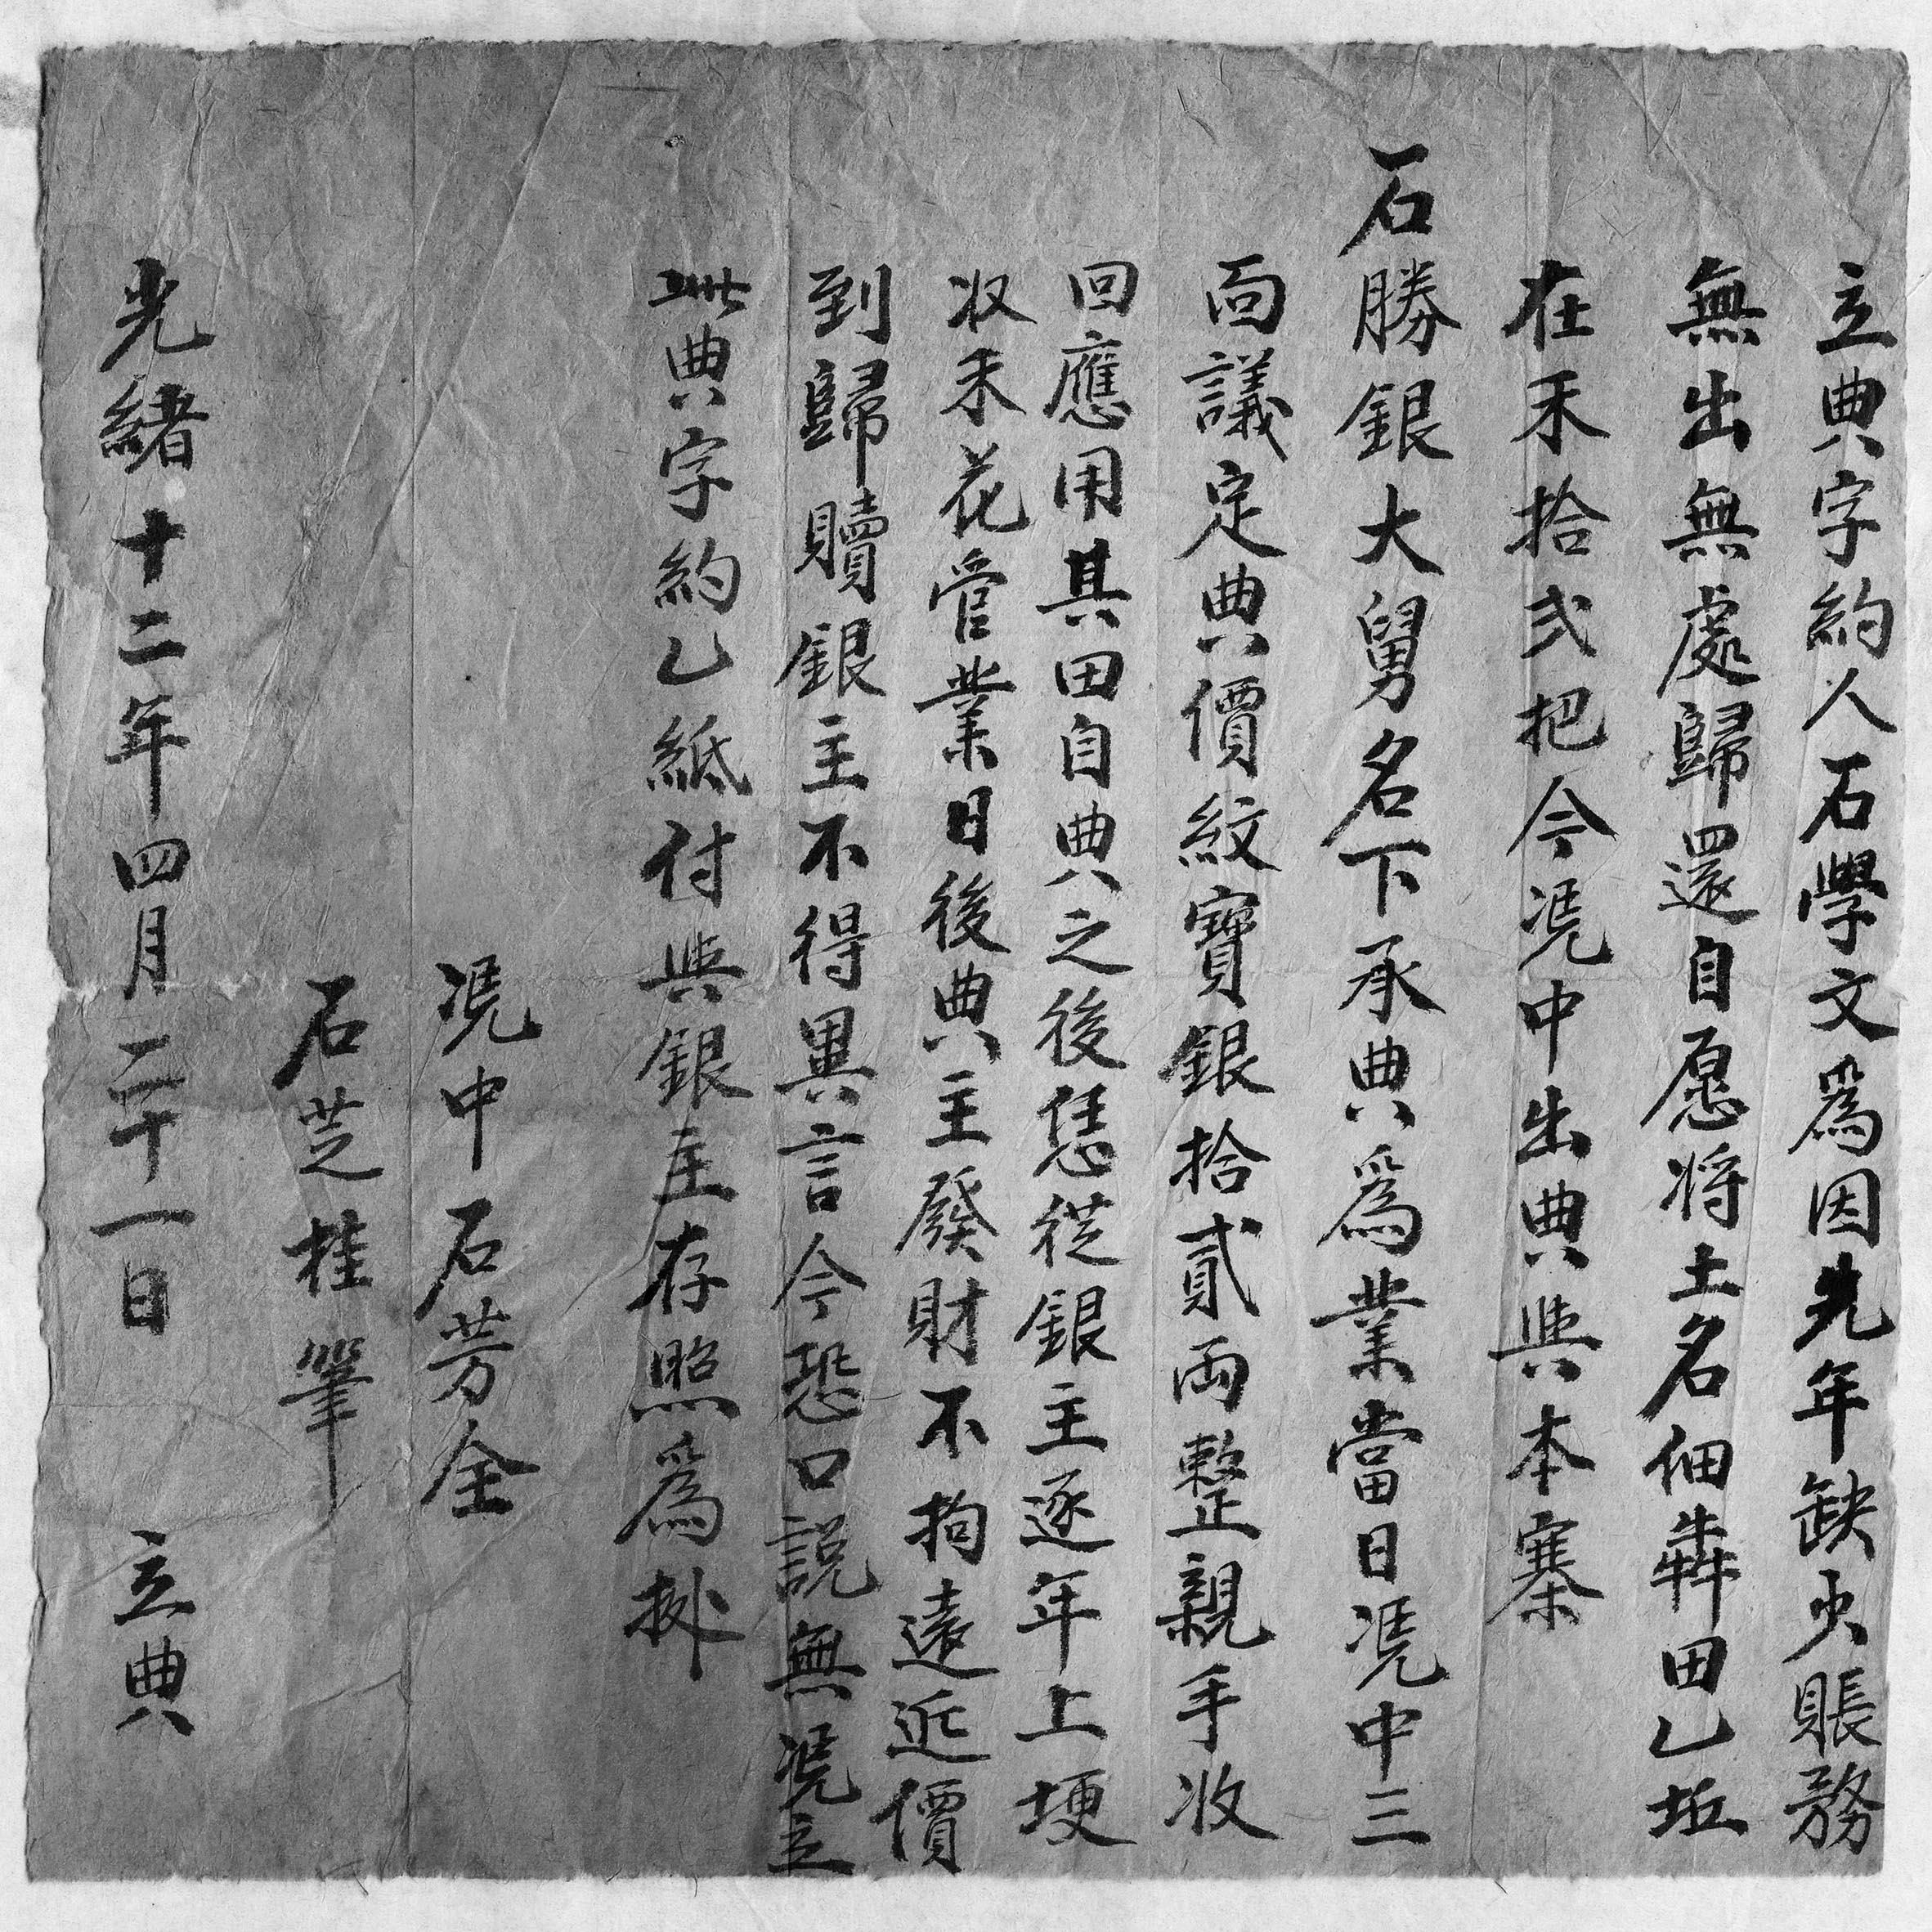 立典字約人石學文爲因先年缺少賬務
無出無處歸還自愿将土名佃犇田乚坵
在禾拾弍把今凴中出典與本寨
石勝銀大舅名下承典爲業當日凴中三
面議定典價紋寶銀拾貳両整親手收
回應用其田自典之後恁從銀主逐年上埂
收禾花管業日後典主發財不拘遠近價
到歸贖銀主不得異言今恐口說無凴立
此典字約乚紙付與銀主存照爲拠
凴中石芳全
石芝桂筆
光緒十二年四月二十一日 立典